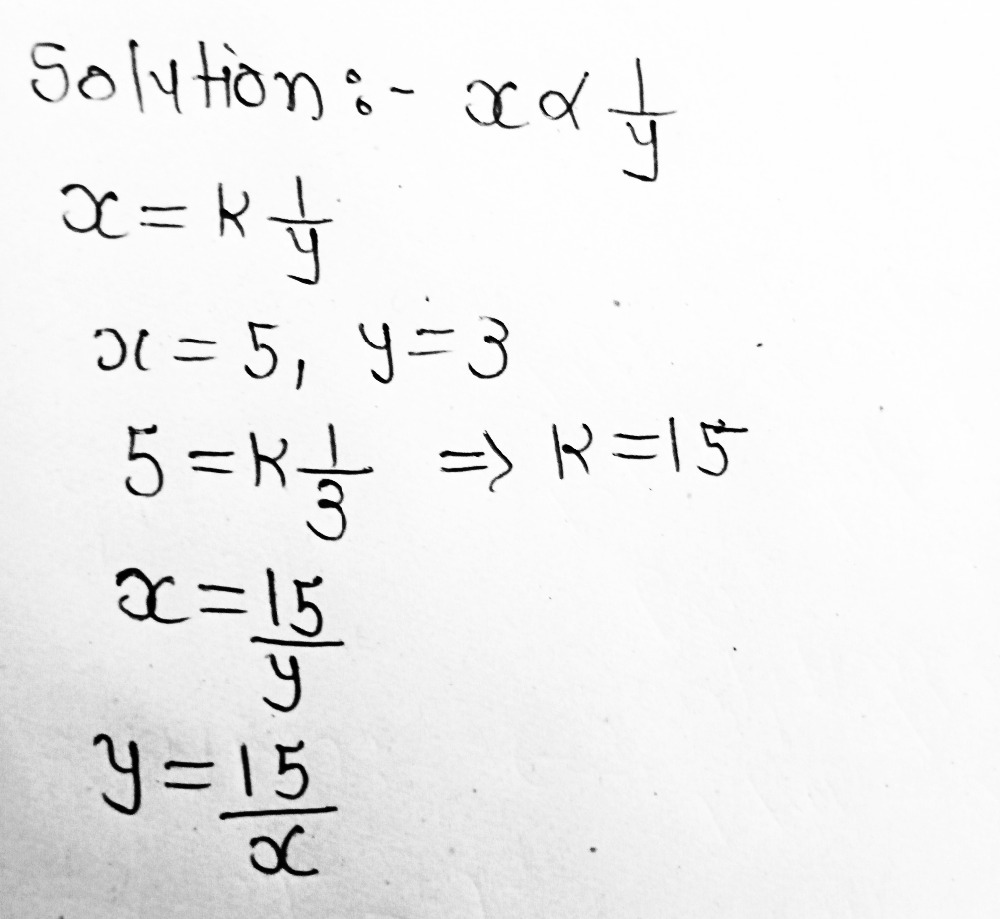 Solution :- x ∝ 1/y
x = k 1/y
x = 5, y = 3
5 = k 1/3 ⇒ k = 15
x = 15/y
y = 15/x